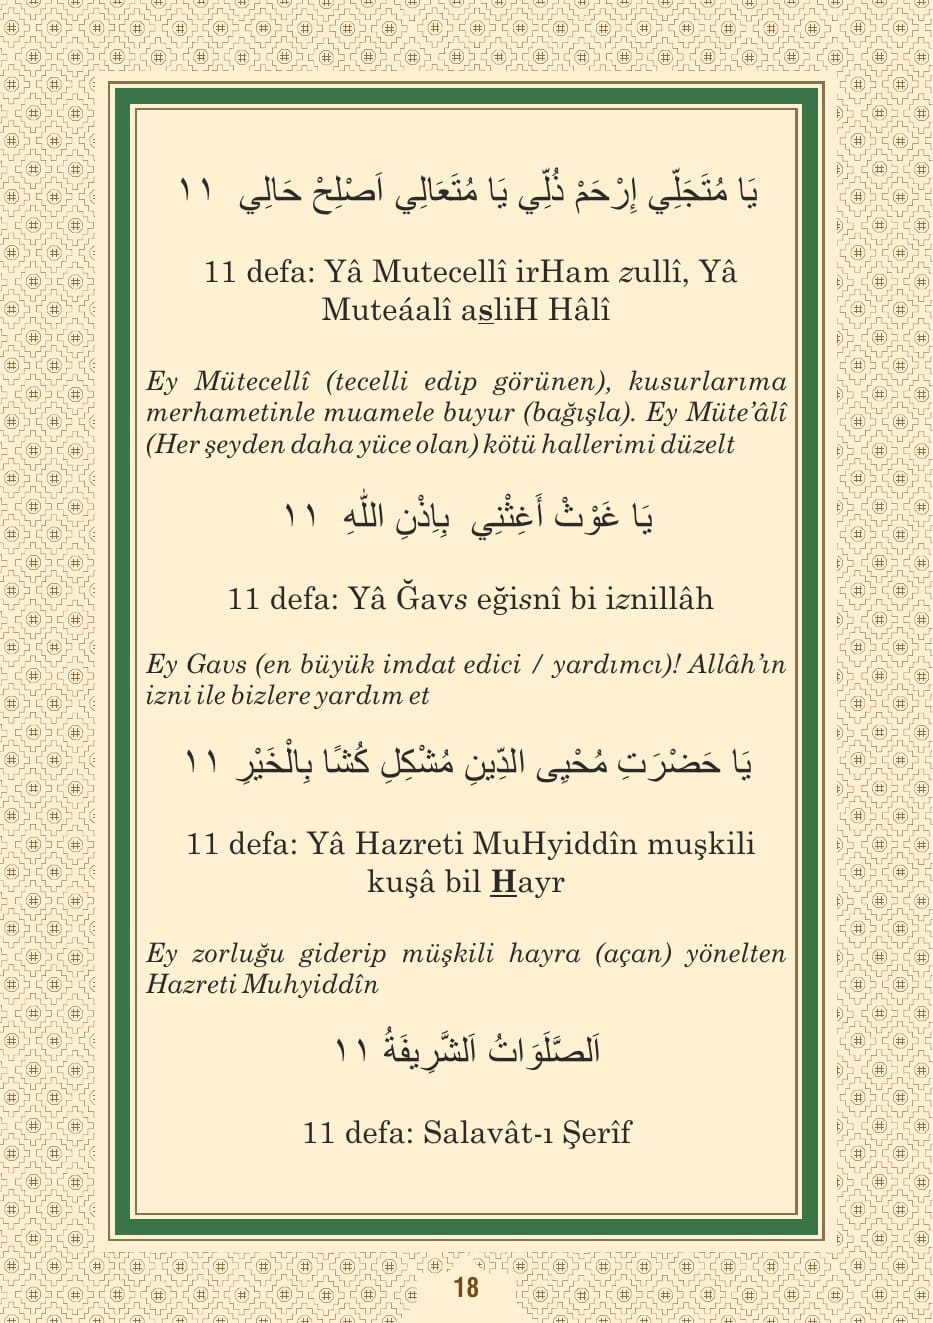 يَا مُتَجَلِّي إِرْحَمْ ذُلِّي يَا مُتَعَالِي اَصْلِحْ حَالِي ١١
11 defa: Yâ Mutecellî irHam zullî, Yâ
Muteáalî asliH Hâlî
Ey Mütecellî (tecelli edip görünen), kusurlarıma
merhametinle muamele buyur (bağışla). Ey Müte’âlî
(Her şeyden daha yüce olan) kötü hallerimi düzelt
يَا غَوْثْ أَغِثْنِي بِاِذْنِ اللّٰهِ ١١
11 defa: Yâ Ğavs eğisnî bi iznillâh
Ey Gavs (en büyük imdat edici / yardımcı)! Allâh’ın
izni ile bizlere yardım et
يَا حَضْرَتِ مُحْيِى الدِّينِ مُشْكِلِ كُشًا بِالْخَيْرِ ١١
11 defa: Yâ Hazreti MuHyiddîn muşkili
kuşâ bil Hayr
Ey zorluğu giderip müşkili hayra (açan) yönelten
Hazreti Muhyiddîn
اَلصَّلَوَاتُ اَلشَّرِيفَةُ ١١
11 defa: Salavât-ı Şerîf
18